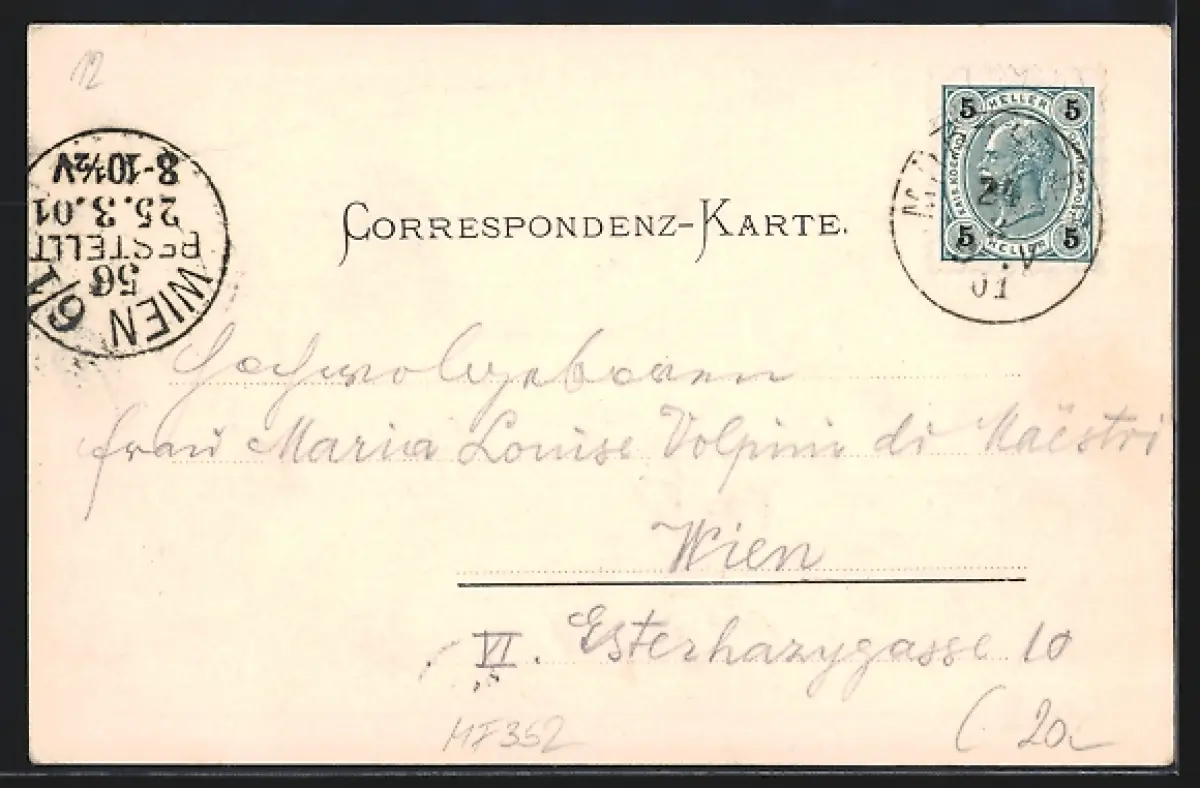 12
CORRESPONDENZ-KARTE.
5 HELLER 5
5 HELLER 5
24
01
8-10½V
25.3.01
BESTELLT
WIEN 6/1
Hochwolgeboren
Frau Maria Louise Volpini di Maëstri
Wien
VI. Esterhazygasse 10
MF352
20